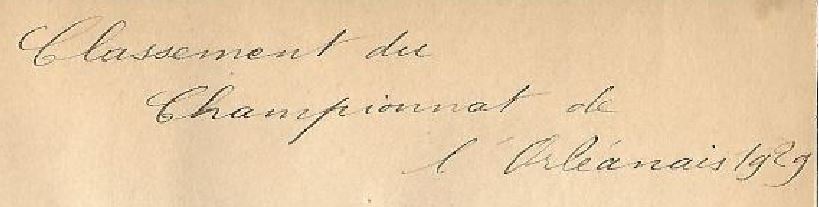 Classement du
Championnat de
l'Orléanais 1929